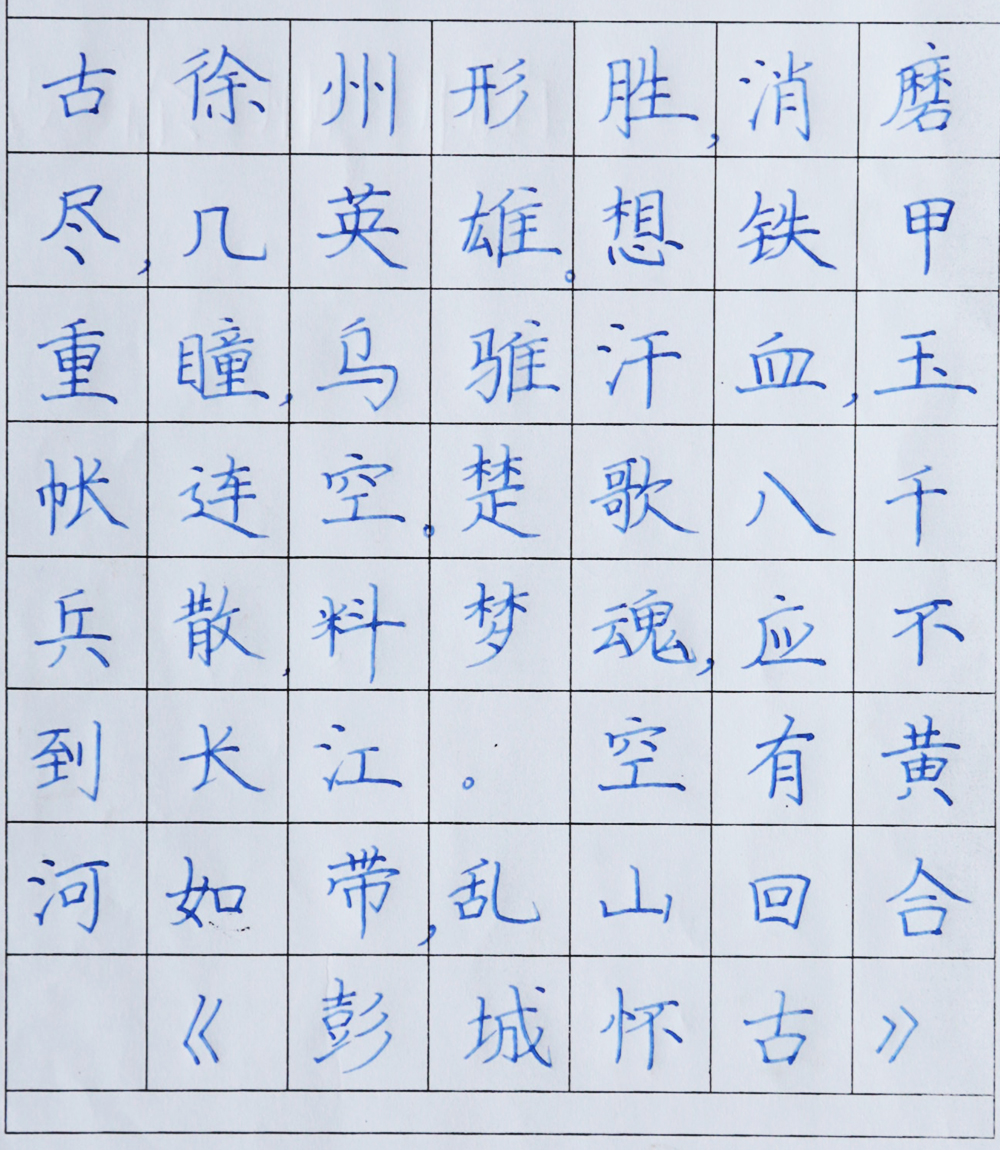 古徐州形胜,消磨
尽,几英雄。想铁甲
重瞳,乌骓汗血,玉
帐连空。楚歌八千
兵散,料梦魂,应不
到长江。空有黄
河如带,乱山回合
《彭城怀古》